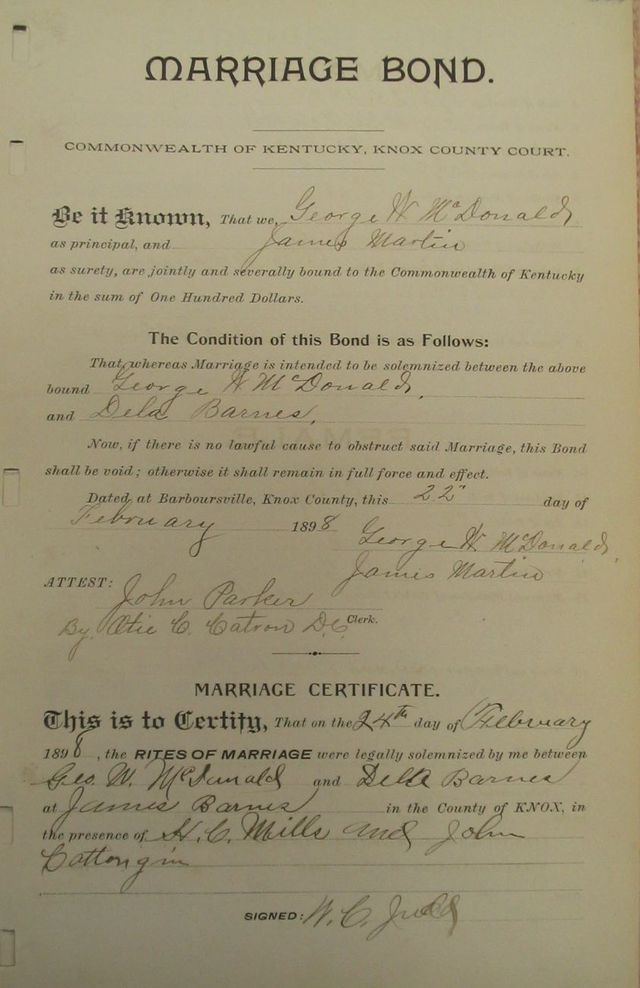 MARRIAGE BOND.
COMMONWEALTH OF KENTUCKY, KNOX COUNTY COURT.
Be it Known, That we, George W McDonald,
as principal, and James Martin
as surety, are jointly and severally bound to the Commonwealth of Kentucky
in the sum of One Hundred Dollars.
The Condition of this Bond is as Follows:
That, whereas Marriage is intended to be solemnized between the above
bound George W McDonald,
and Dela Barnes,
Now, if there is no lawful cause to obstruct said Marriage, this Bond
shall be void; otherwise it shall remain in full force and effect.
Dated at Barboursville, Knox County, this 22" day of
February 1898
George W McDonald,
James Martin
ATTEST:
John Parker
By Otie C. Catron D.C. Clerk.
MARRIAGE CERTIFICATE.
This is to Certify, That on the 24th day of February
1898, the RITES OF MARRIAGE were legally solemnized by me between
Geo. W. McDonald and Della Barnes
at James Barnes in the County of KNOX, in
the presence of H. C. Mills and John
Cottongim
SIGNED: W. C. Judd